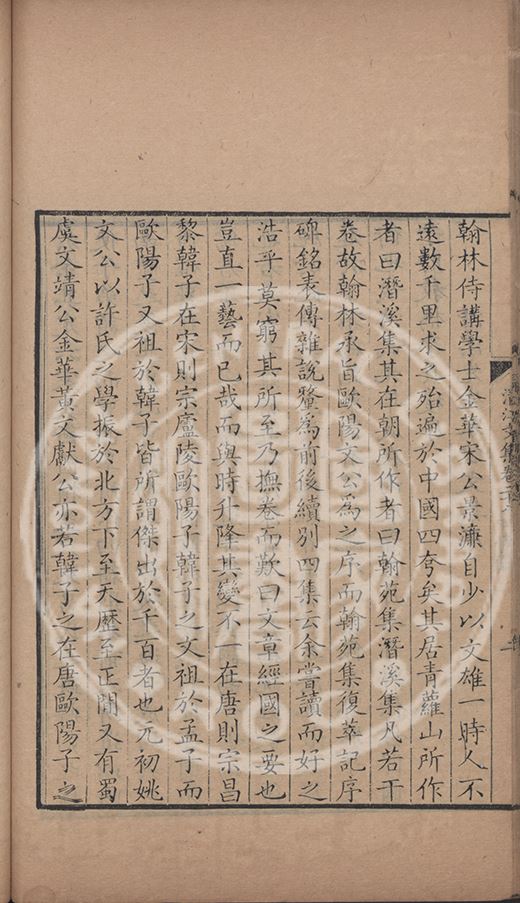 翰林侍講學士金華宋公景濂自少以文雄一時人不
遠數千里求之殆遍於中國四夸矣其居青蘿山所作
者曰潛溪集其在朝所作者曰翰苑集潛溪集凡若干
卷故翰林承旨歐陽文公為之序而翰苑集復萃記序
碑銘表傳雜說釐為前後續別四集云余嘗讀而好之
浩乎莫窮其所至乃撫卷而歎曰文章經國之要也
豈直一藝而已哉而與時升降其變不一在唐則宗昌
黎韓子在宋則宗廬陵歐陽子韓子之文祖於孟子而
歐陽子又祖於韓子皆所謂傑出於千百者也元初姚
文公以許氏之學振於北方下至天曆至正間又有蜀
虞文靖公金華黃文獻公亦若韓子之在唐歐陽子之